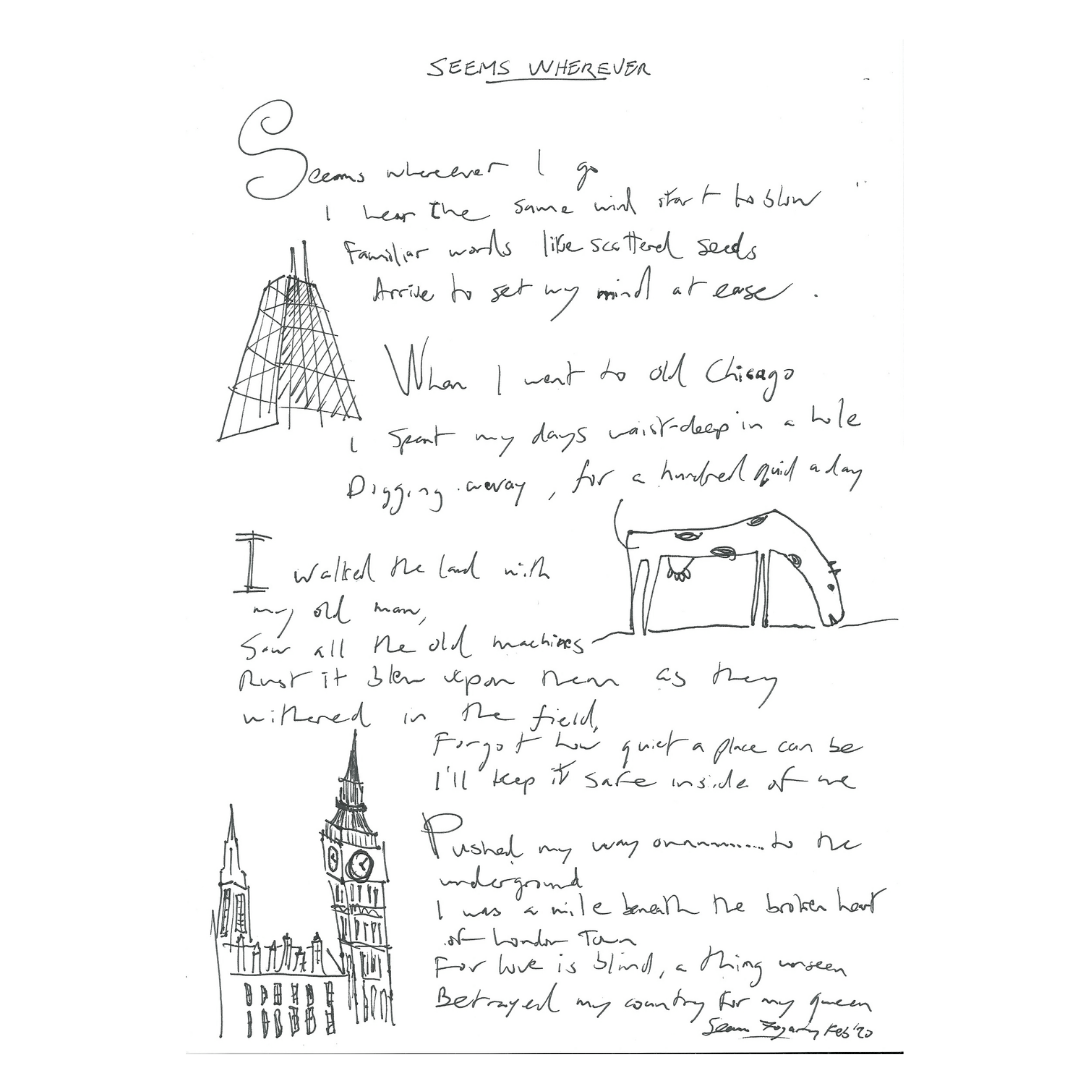 SEEMS WHEREVER
Seems wherever I go
I hear the same wind start to blow
Familiar words like scattered seeds
Arrive to set my mind at ease.
When I went to old Chicago
I spent my days waist-deep in a hole
Digging away, for a hundred quid a day
I walked the land with
my old man,
Saw all the old machines
Rust it blew upon them as they
withered in the field,
Forgot how quiet a place can be
I'll keep it safe inside of me
Pushed my way onnnnnn.....to the
underground
I was a mile beneath the broken heart
of London Town
For love is blind, a thing unseen
Betrayed my country for my queen
Sean Fogarty Feb '20